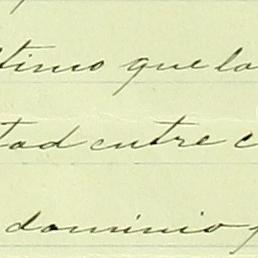 timo que la
tad entre
dominio